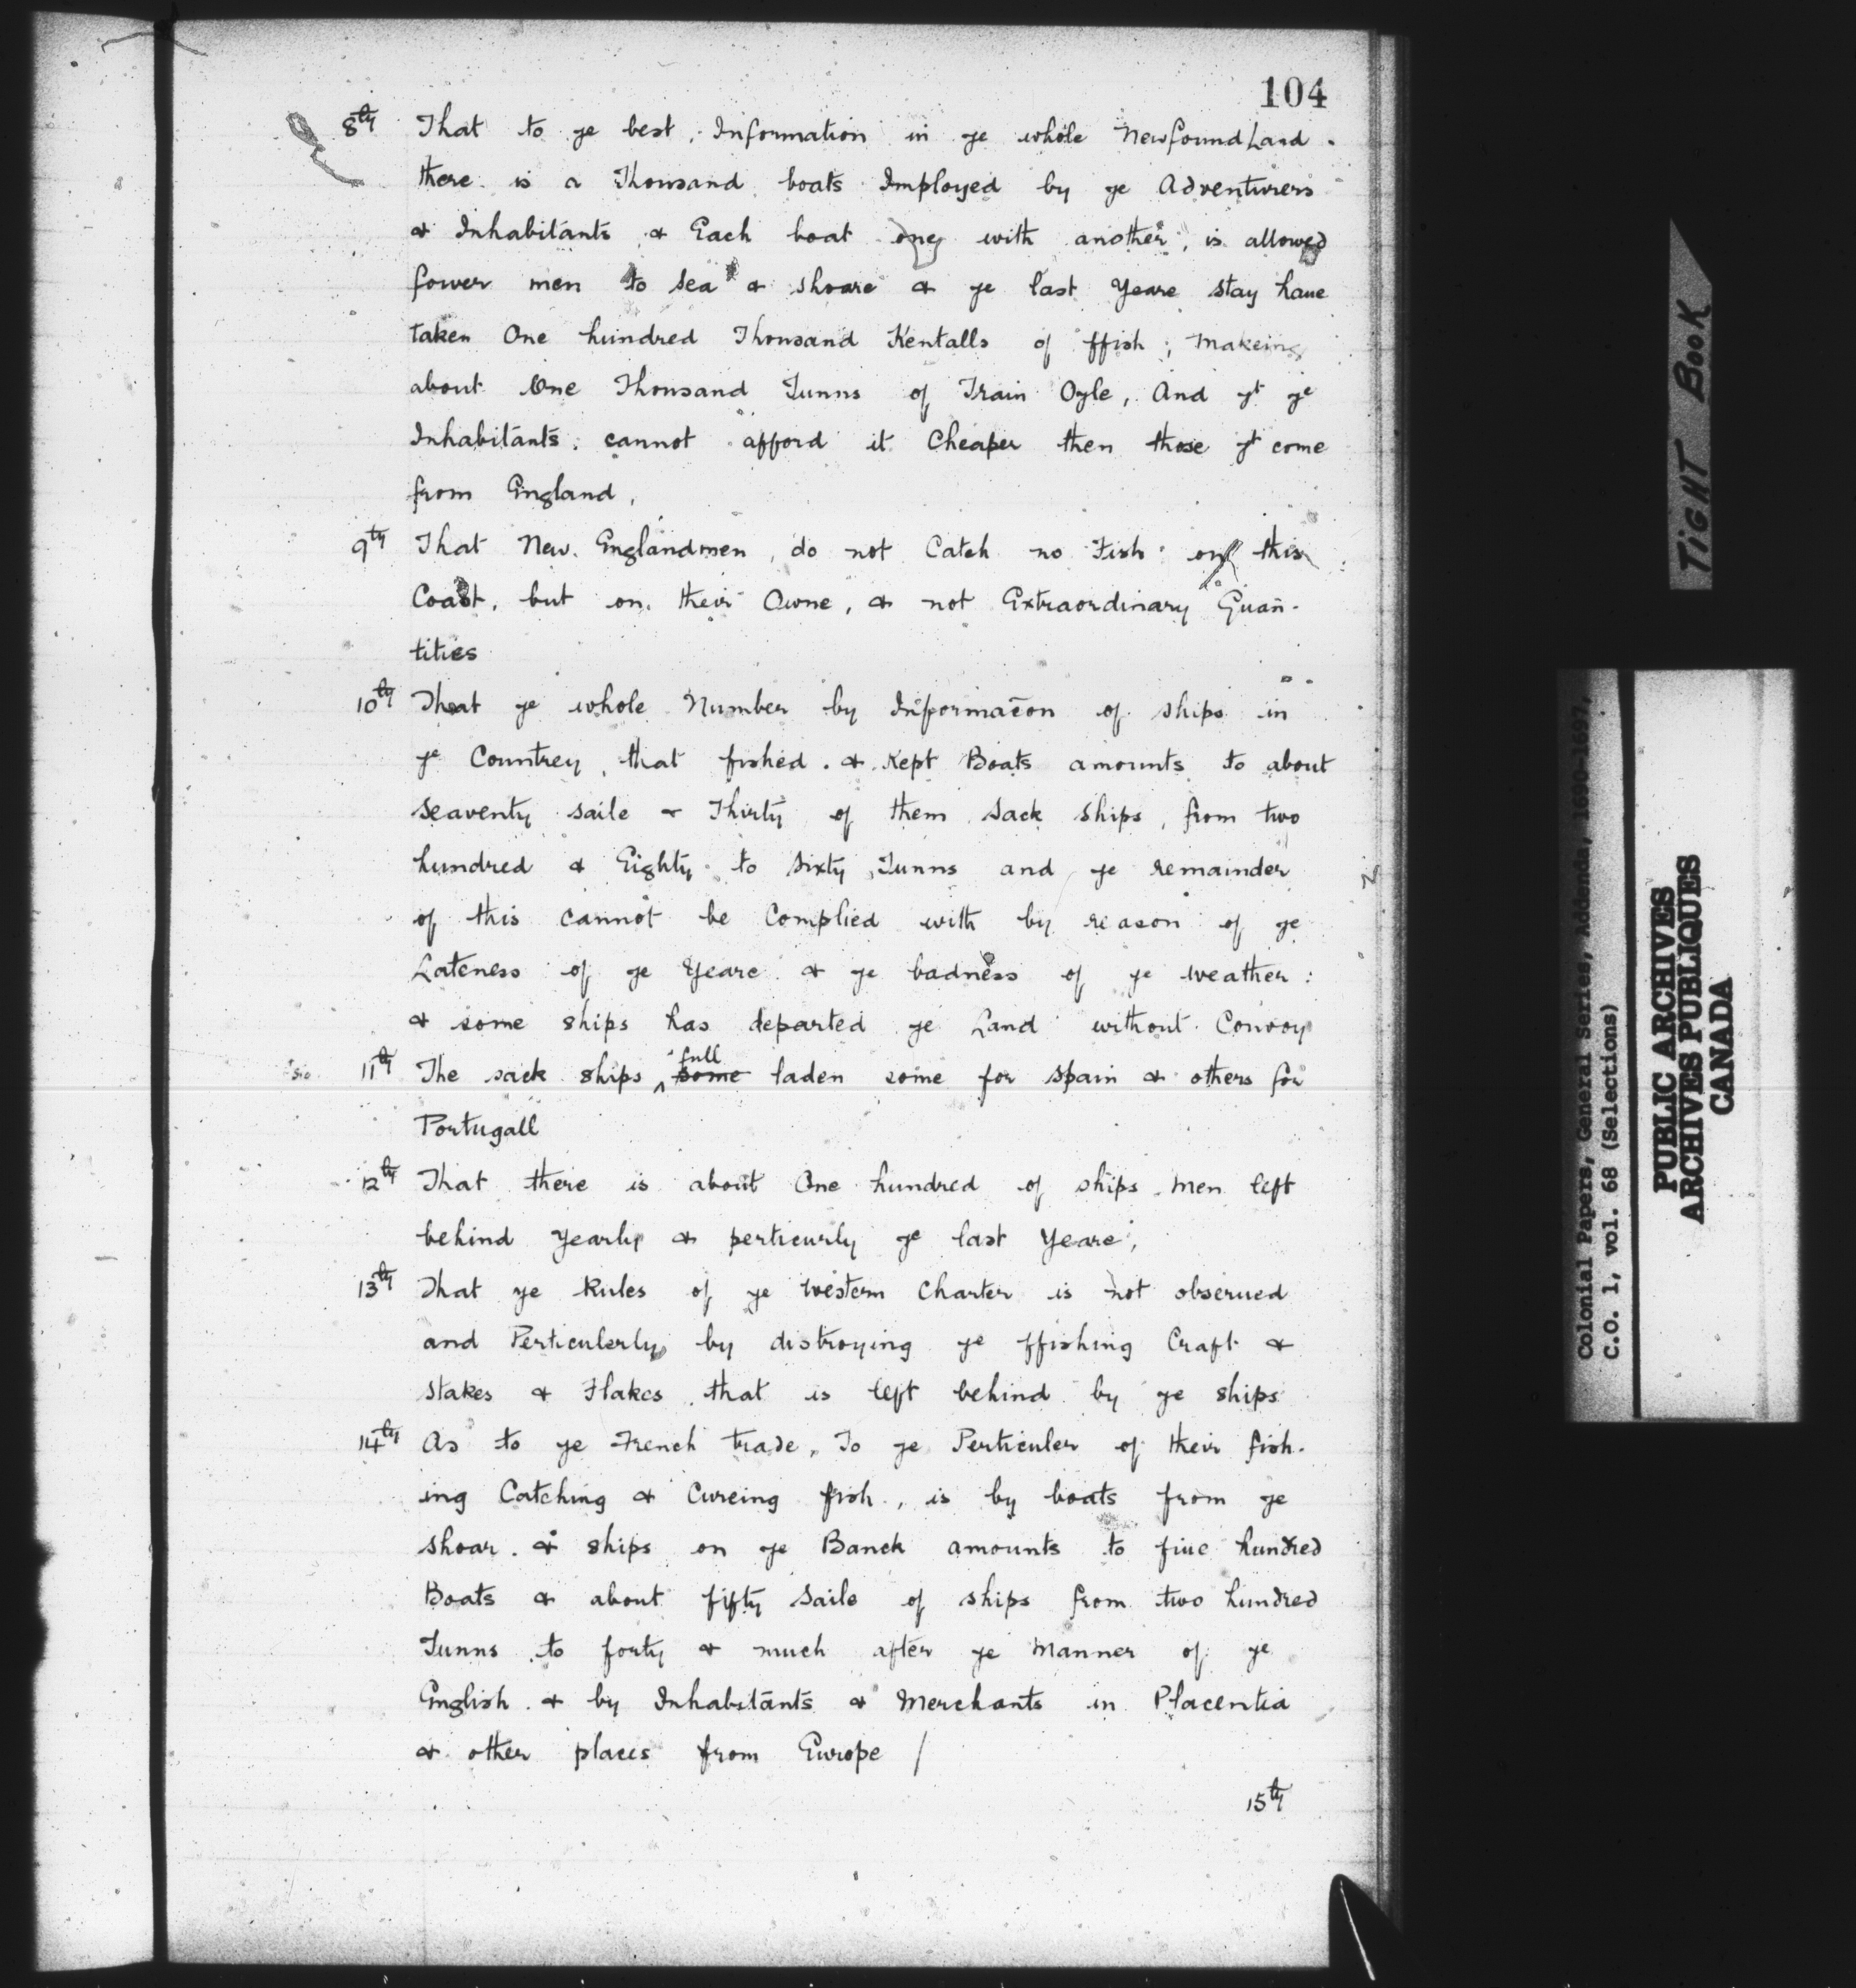 104
8th That to ye best Information in ye whole NewfoundLand
there is a Thousand boats Imployed by ye Adventurers
& Inhabitants & Each boat one with another, is allowed
fower men to sea & shoare & ye last Yeare stay haue
taken One hundred Thousand Kentalls of ffish; Makeing
about One Thousand Tunns of Train Oyle, And yt ye
Inhabitants cannot afford it Cheaper then those yt come
from England,
9th That New Englandmen, do not Catch no Fish on this
Coast, but on their Owne, & not Extraordinary Quan-
tities
10th That ye whole Number by Informačon of ships in
ye Countrey that fished & Kept Boats amounts to about
Seaventy saile & Thirty of them Sack Ships, from two
hundred & Eighty to Sixty Tunns and ye remainder
of this cannot be Complied with by reason of ye
Lateness of ye Yeare & ye badness of ye weather:
& some ships has departed ye Land without Convoy
sic 11th The sack ships ^full some laden some for Spain & others for
Portugall
12th That there is about One hundred of ships men left
behind Yearly & perticurly ye last Yeare;
13th That ye Rules of ye Western Charter is not obserued
and Perticulerly by distroying ye ffishing Craft &
Stakes & Flakes that is left behind by ye ships
14th As to ye French trade, To ye Perticuler of their fish-
ing Catching & Cureing fish, is by boats from ye
Shoar & ships on ye Banck amounts to fiue hundred
Boats & about fifty Saile of ships from two hundred
Tunns to forty & much after ye Manner of ye
English & by Inhabitants & Merchants in Placentia
& other places from Europe /
15th
TIGHT BOOK
Colonial Papers, General Series, Addenda, 1690-1697,
C.O. 1, vol. 68 (Selections)
PUBLIC ARCHIVES
ARCHIVES PUBLIQUES
CANADA